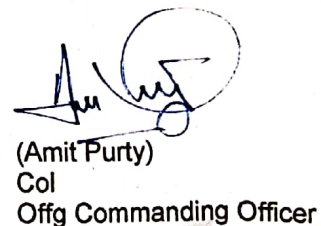 (Amit Purty)
Col
Offg Commanding Officer